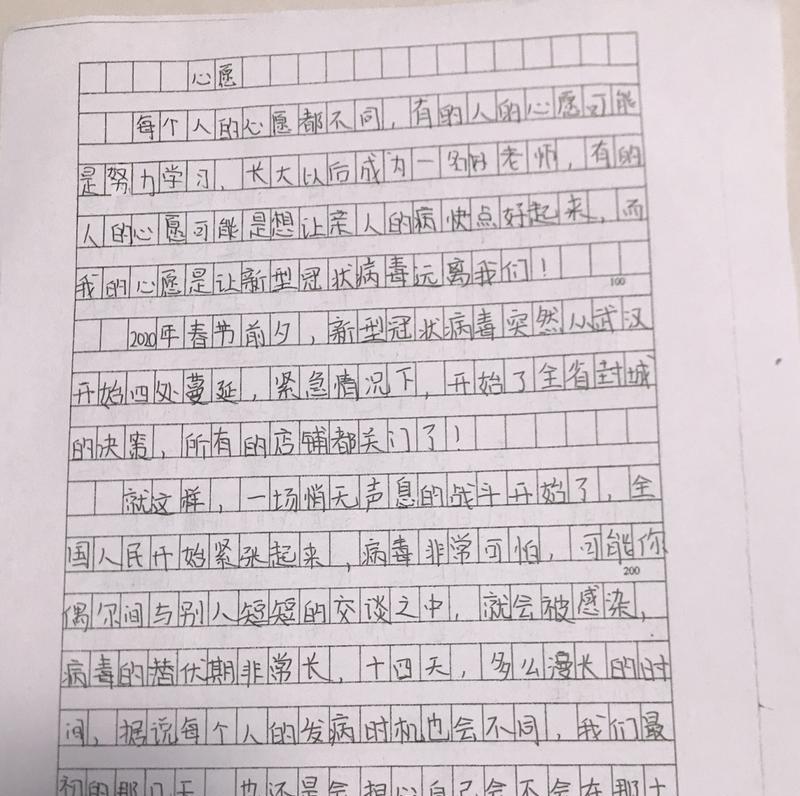 心愿
每个人的心愿都不同，有的人的心愿可能
是努力学习，长大以后成为一名好老师，有的
人的心愿可能是想让亲人的病快点好起来，而
我的心愿是让新型冠状病毒远离我们！
100
2020年春节前夕，新型冠状病毒突然从武汉
开始四处蔓延，紧急情况下，开始了全省封城
的决策，所有的店铺都关门了！
就这样，一场悄无声息的战斗开始了，全
国人民开始紧张起来，病毒非常可怕，可能你
200
偶尔间与别人短短的交谈之中，就会被感染，
病毒的潜伏期非常长，十四天，多么漫长的时
间，据说每个人的发病时机也会不同，我们最
初的那几天，也还是会担心自己会不会在那十